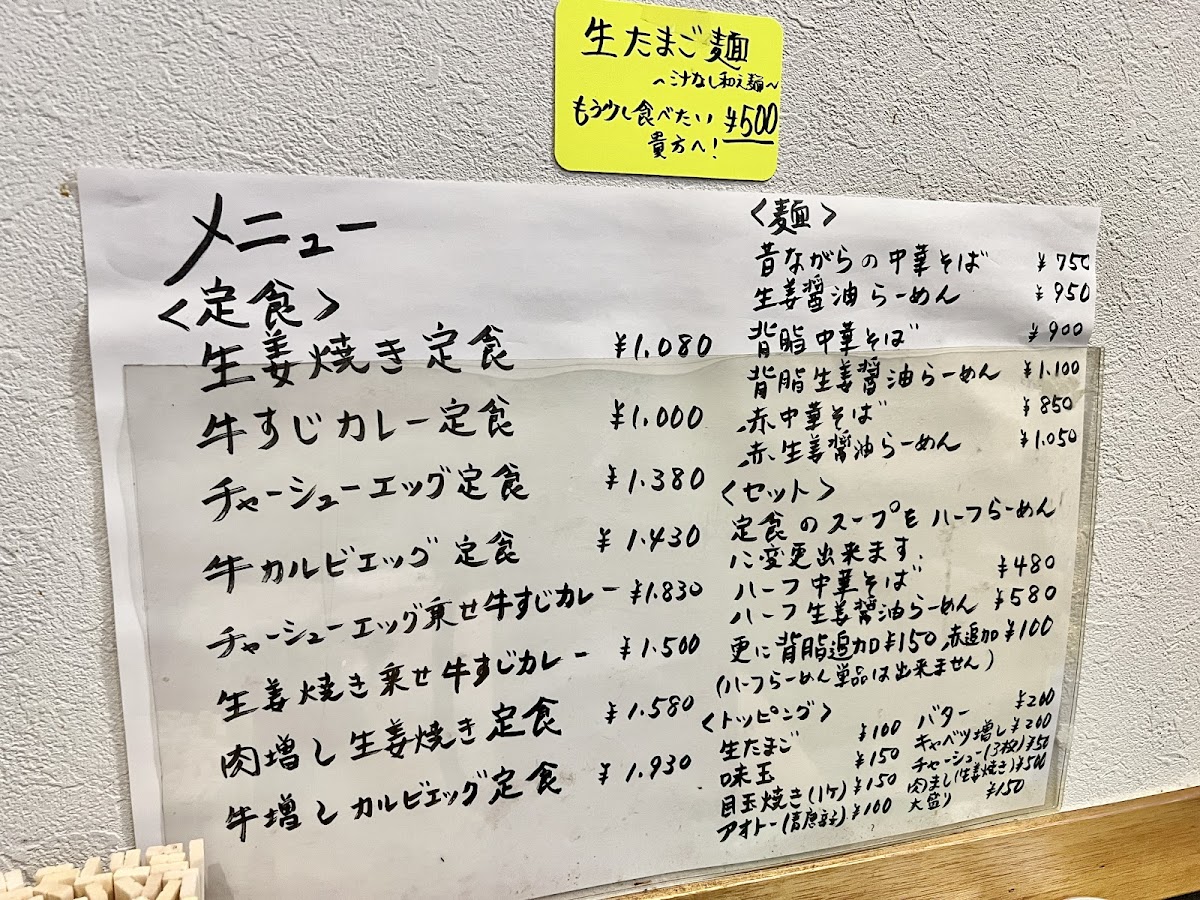 生たまご麺
～汁なし和え麺～
もう少し食べたい
貴方へ！
¥500
メニュー
〈定食〉
生姜焼き定食 ¥1.080
牛すじカレー定食 ¥1.000
チャーシューエッグ定食 ¥1.380
牛カルビエッグ定食 ¥1.430
チャーシューエッグ乗せ牛すじカレー ¥1.830
生姜焼き乗せ牛すじカレー ¥1.500
肉増し生姜焼き定食 ¥1.580
牛増しカルビエッグ定食 ¥1.930
〈麺〉
昔ながらの中華そば ¥750
生姜醤油らーめん ¥950
背脂中華そば ¥900
背脂生姜醤油らーめん ¥1.100
赤中華そば ¥850
赤生姜醤油らーめん ¥1.050
〈セット〉
定食のスープをハーフらーめん
に変更出来ます.
ハーフ中華そば ¥480
ハーフ生姜醤油らーめん ¥580
更に背脂追加¥150,赤追加¥100
(ハーフらーめん単品は出来ません)
〈トッピング〉
生たまご ¥100
味玉 ¥150
目玉焼き(1ケ) ¥150
アオトー(青唐辛子) ¥100
バター ¥200
キャベツ増し ¥200
チャーシュー(3枚)
肉まし(生姜焼き) ¥500
大盛り ¥150